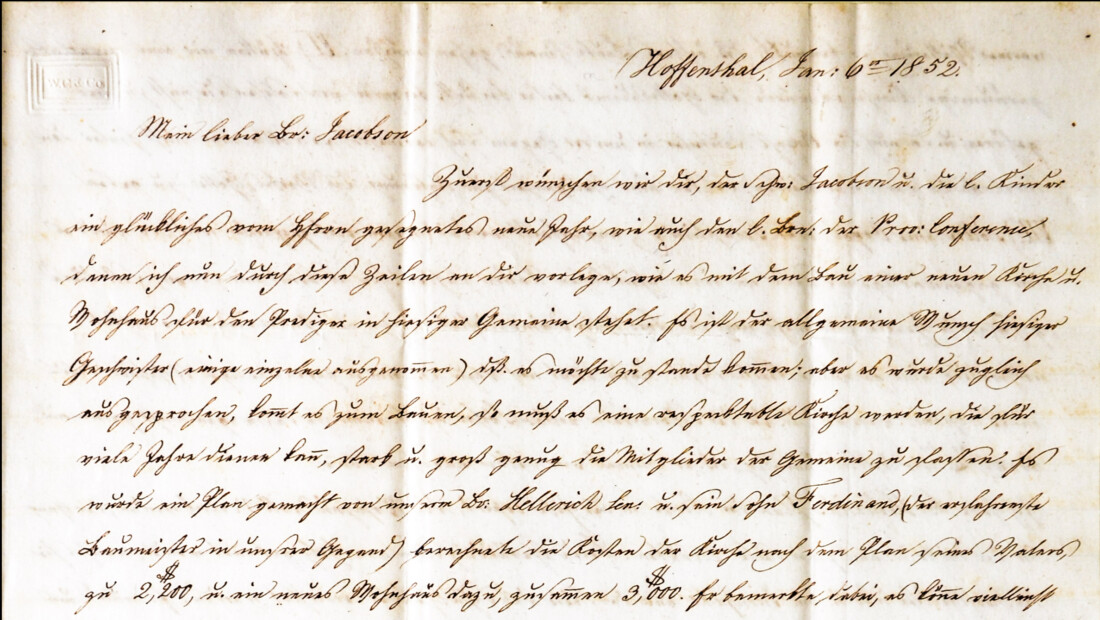 W.G. & Co
Hoffenthal, Jan: 6n 1852.
Mein lieber Br: Jacobson
Zuerst wünschen wir dir, der Schw: Jacobson u. die l. Kinder
ein glückliches vom Herrn gesegnetes neue Jahr, wie auch den l. Brn: der Prov: Conferenz,
denen ich nun durch diese Zeilen an dir vorlege, wie es mit dem Bau einer neuen Kirche u.
Wohnhaus für den Prediger in hiesiger Gemeine stehet. Es ist der allgemeine Wunsch hiesiger
Geschwister (einige einzelne ausgenommen) dß. es möchte zu stande kommen; aber es wurde zugleich
ausgesprochen, kommt es zum Bauen, so muß es eine respecktable Kirche werden, die für
viele Jahre dienen kan, stark u. groß genug die Mitglieder der Gemeine zu fassen. Es
wurde ein Plan gemacht von unserm Br: Hellerich sen: u. sein Sohn Ferdinand, (der erfahrenste
Baumeister in unsrer Gegend) berechnete die Kosten der Kirche nach dem Plan seines Vaters,
zu $2,200, u. ein neues Wohnhaus dazu, zusammen $3,000. Er bemerkte dabei, es könne vielleicht